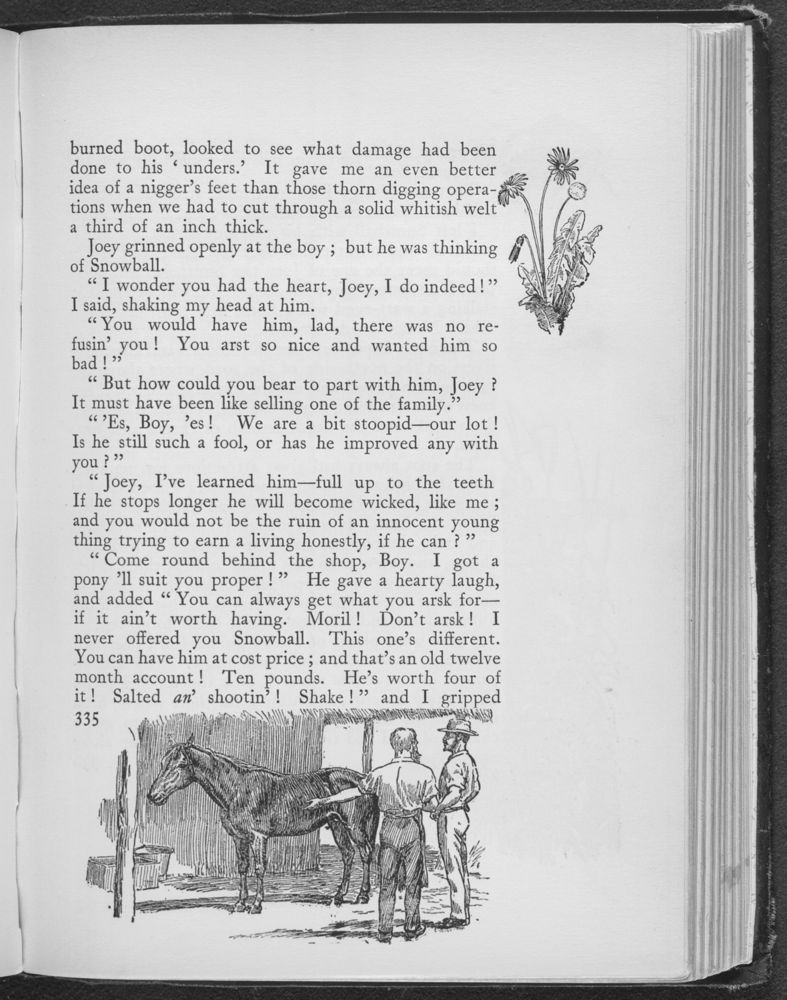 burned boot, looked to see what damage had been
done to his ‘ unders.’ It gave me an even better
idea of a nigger’s feet than those thorn digging opera-
tions when we had to cut through a solid whitish welt
a third of an inch thick.
Joey grinned openly at the boy ; but he was thinking
of Snowball.
“ I wonder you had the heart, Joey, I do indeed ! ”
I said, shaking my head at him.
“ You would have him, lad, there was no re-
fusin’ you ! You arst so nice and wanted him so
bad ! ”
“ But how could you bear to part with him, Joey ?
It must have been like selling one of the family.”
“ ’Es, Boy, ’es ! We are a bit stoopid—our lot !
Is he still such a fool, or has he improved any with
you ? ”
“ Joey, I’ve learned him—full up to the teeth
If he stops longer he will become wicked, like me ;
and you would not be the ruin of an innocent young
thing trying to earn a living honestly, if he can ? ”
“ Come round behind the shop, Boy. I got a
pony ’ll suit you proper ! ” He gave a hearty laugh,
and added “ You can always get what you arsk for—
if it ain’t worth having. Moril ! Don’t arsk ! I
never offered you Snowball. This one’s different.
You can have him at cost price ; and that’s an old twelve
month account ! Ten pounds. He’s worth four of
it ! Salted an’ shootin’ ! Shake ! ” and I gripped
335